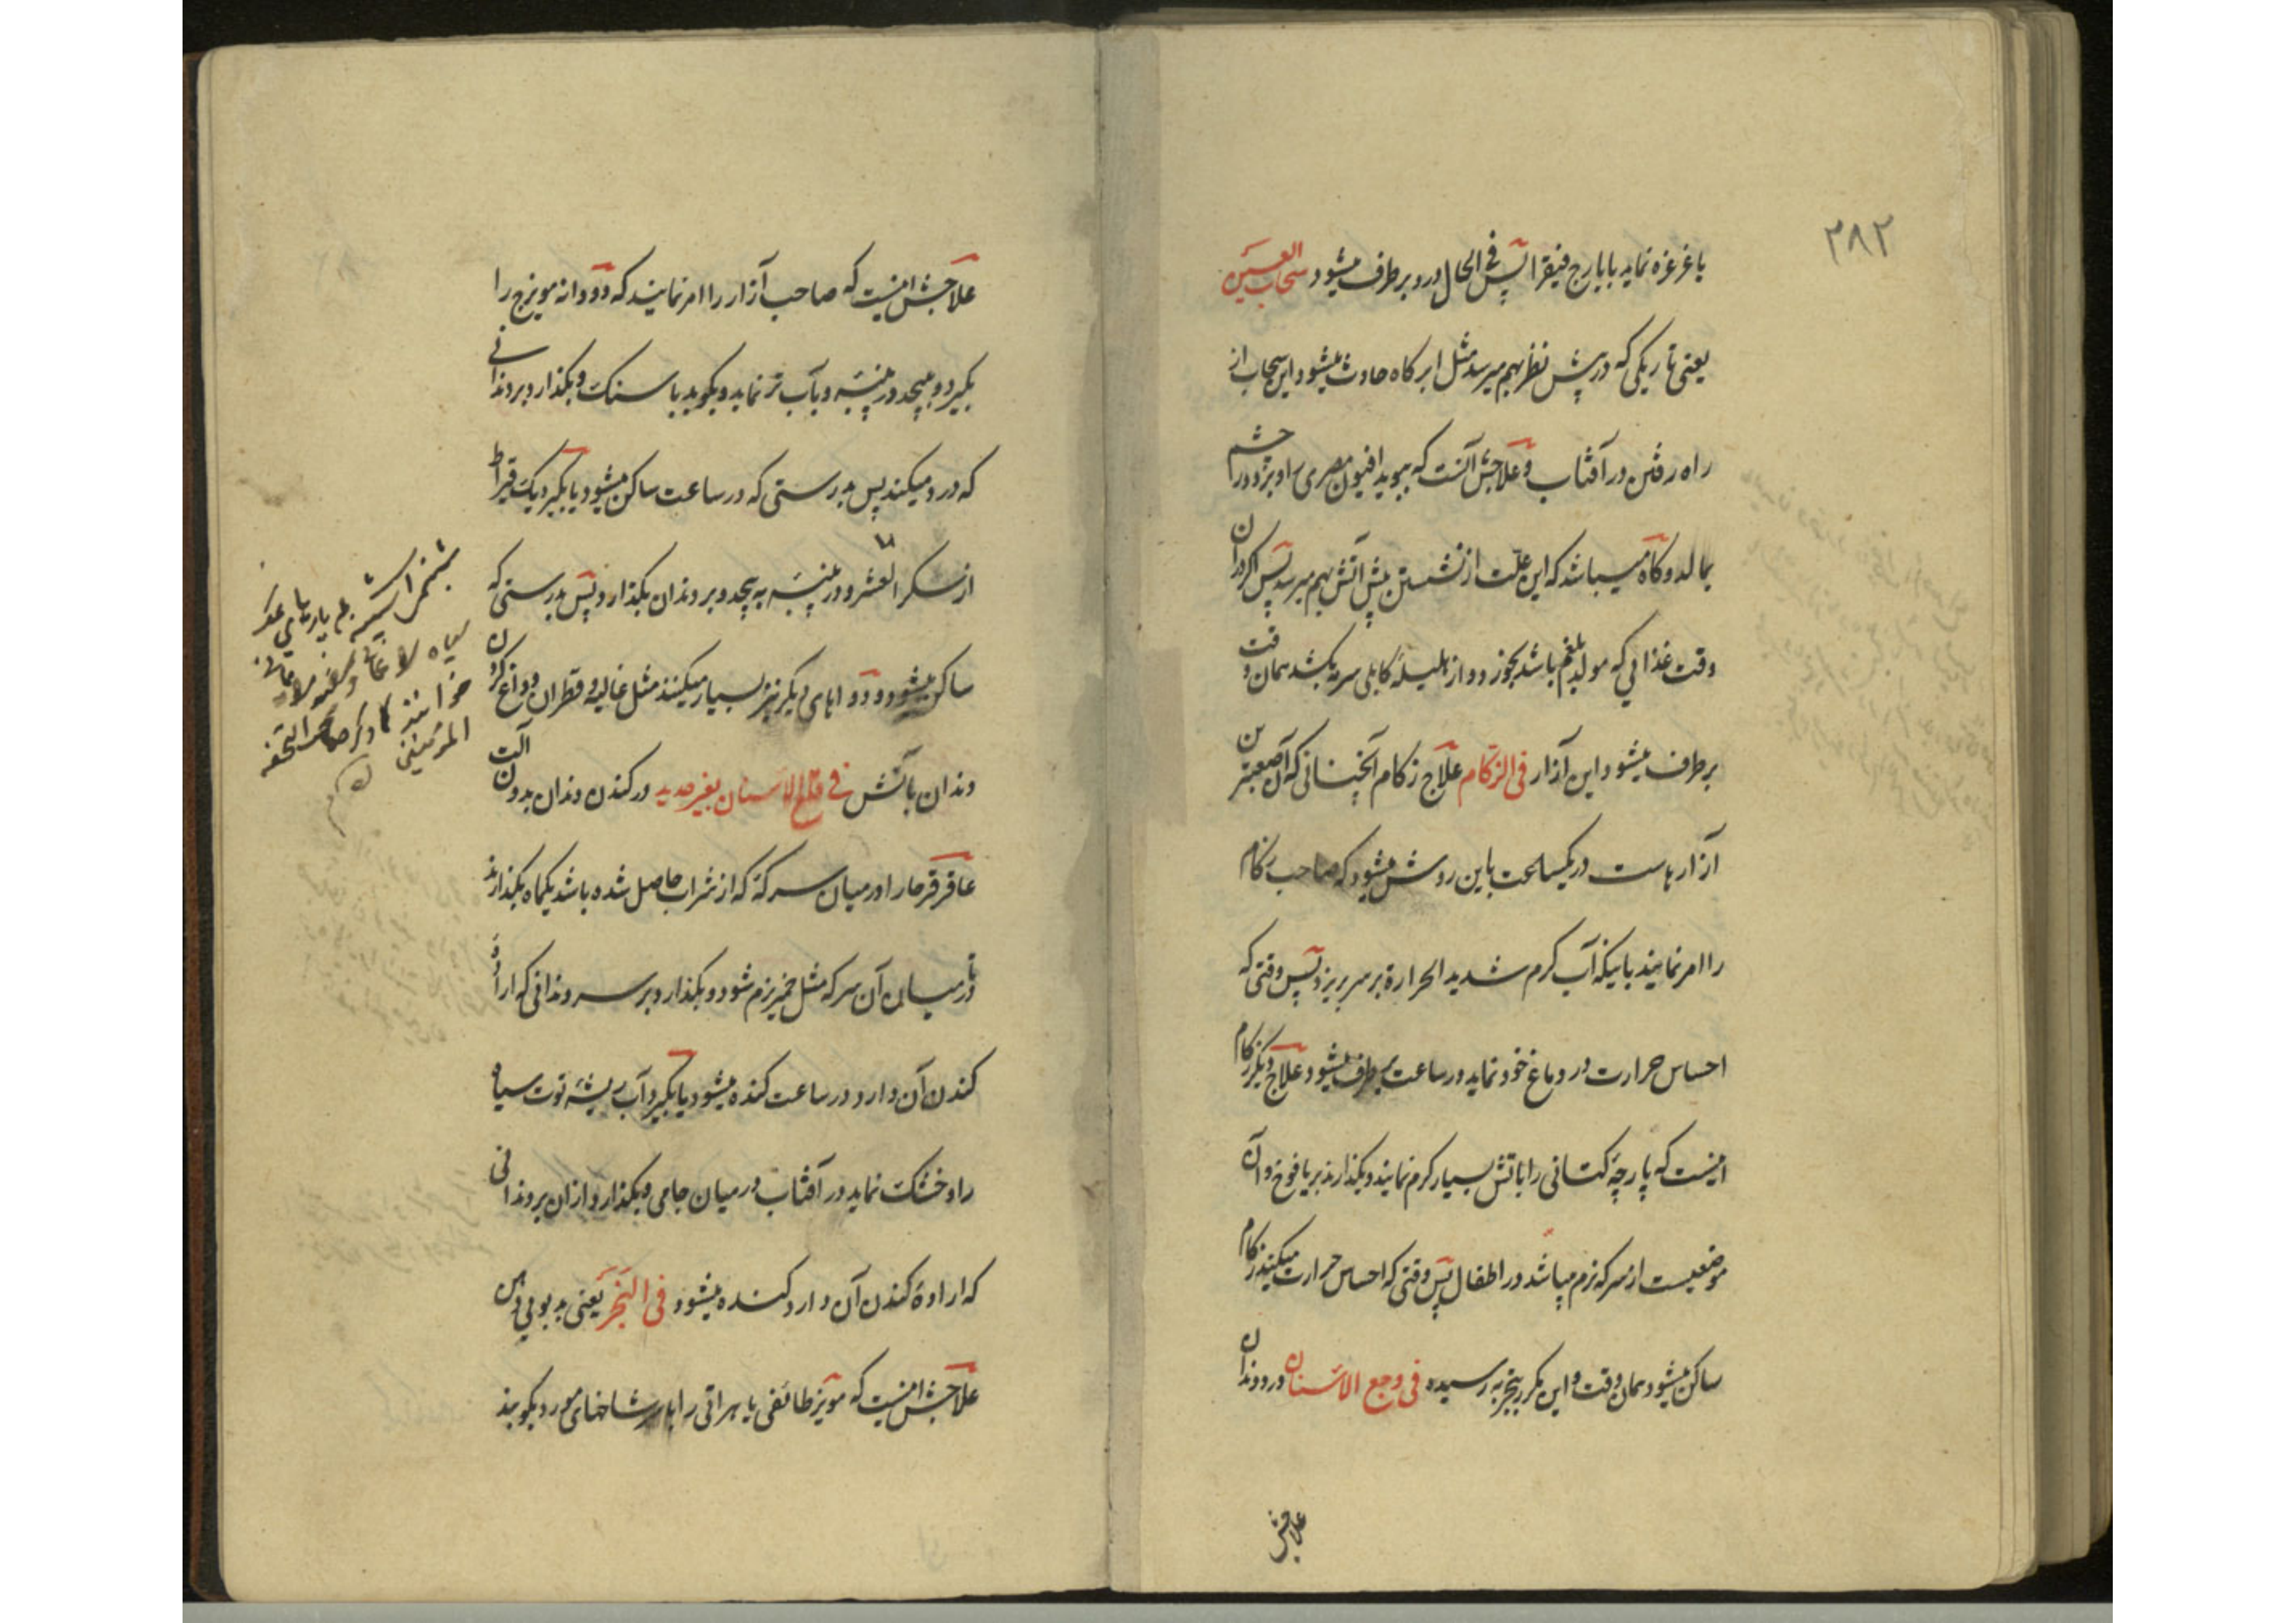 ۲۸۲
یا غرغره نماید بایارج فیقرا پس فی الحال درد برطرف میشود سحاب العین
یعنی تاریکی که در پیش نظر بهم میرسد مثل ابر کاه حادث میشود این سحاب از
راه رفتن در آفتاب و علاجش آنست که ببوید افیون مصری را و بر دور چشم
بمالد و کاه میباشد که این علت از نشستن پیش آتش بهم میرسد پس اگر در آن
وقت غذائی که مولد بلغم باشد بخورد و از هلیلهٔ کابلی سرمه بکشد همان وقت
برطرف میشود این آزار فی الزکام علاج زکام آنچنانی که آن صعبترین
آزارهاست در یکساعت باین روش میشود که صاحب زکام
را امر نمایند باینکه آب کرم شدید الحرارة بر سر بریزد پس وقتی که
احساس حرارت در دماغ خود نماید در ساعت برطرف میشود و علاج دیگر زکام
اینست که پارچهٔ کتانی را باتش بسیار کرم نمایند و بکذارند بر یافوخ و آن
موضعیست از سر که نرم میباشد در اطفال پس وقتی که احساس حرارت میکند زکام
ساکن میشود همان وقت و این مکرر بتجربه رسیده فی وجع الاسنان درد دندان
علاجش
علاجش اینست که صاحب آزار را امر نمایند که دو دانه مویزج را
بکیرد و بپیچد در پنبه و بآب تر نماید و بکوبد با سنک و بکذارد بر دندانی
که درد میکند پس بدرستی که در ساعت ساکن میشود یا بکیرد یک قیراط
از سکر العشر و در پنبه به پیچد و بر دندان بکذارد پس بدرستی که
ساکن میشود و دواهای دیکر نیز بسیار میکنند مثل غالیه و قطران و داغ کردن
دندان بآتش فی قلع الاسنان بغیر حدید در کندن دندان بدون آلت
عاقرقرحا را در میان سرکهٔ که از شراب حاصل شده باشد یکماه بکذارند
تا در میان آن سرکه مثل خمیر نرم شود و بکذارد بر سر دندانی که ارادهٔ
کندن آن دارد در ساعت کنده میشود یا بکیرد آب ریشهٔ توت سیاه
را و خشک نماید در آفتاب در میان جامی و بکذارد از آن بر دندانی
که ارادهٔ کندن آن دارد کنده میشود فی البخر یعنی بدبویی دهن
علاجش اینست که مویز طائفی یا هراتی را با سر شاخهای مورد بکوبند